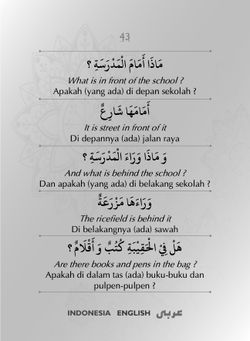 43
مَاذَا أَمَامَ الْمَدْرَسَةِ ؟
What is in front of the school ?
Apakah (yang ada) di depan sekolah ?
أَمَامَهَا شَارِعٌ
It is street in front of it
Di depannya (ada) jalan raya
وَ مَاذَا وَرَاءَ الْمَدْرَسَةِ ؟
And what is behind the school ?
Dan apakah (yang ada) di belakang sekolah ?
وَرَاءَهَا مَزْرَعَةٌ
The ricefield is behind it
Di belakangnya (ada) sawah
هَلْ فِي الْحَقِيْبَةِ كُتُبٌ وَ أَقْلَامٌ ؟
Are there books and pens in the bag ?
Apakah di dalam tas (ada) buku-buku dan
pulpen-pulpen ?
INDONESIA ENGLISH عربي